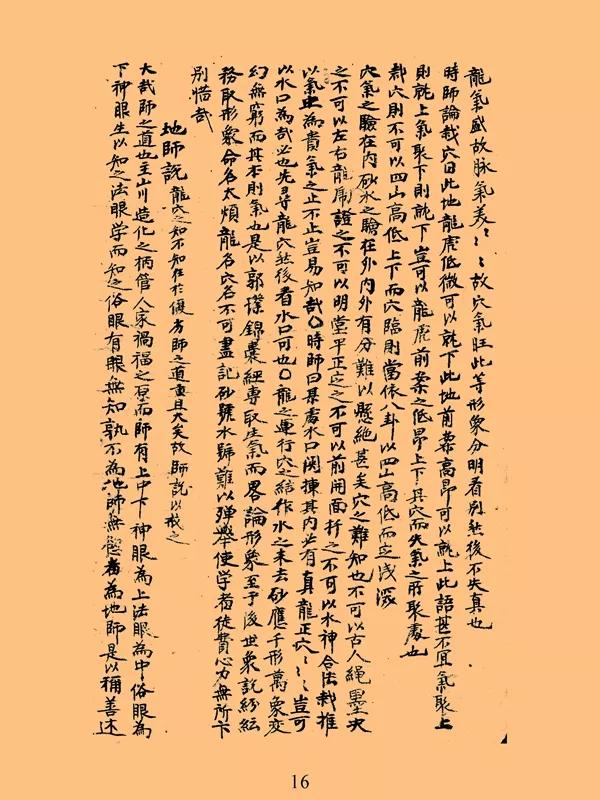 龍氣盛故脉氣奏〻〻故穴氣旺此等形象分明看別然後不失真也
時師論裁穴曰此地龍虎低微可以就下此地前案高昂可以就上此語甚不宜氣聚上
則就上氣聚下則就下豈可以龍虎前案之低昂上下其穴而失氣之所聚處也
裁穴則不可以四山高低上下而穴臨則當依八卦以四山高低而定浅深
穴氣之驗在内砂水之驗在外内外有分難以懸絶甚矣穴之難知也不可以古人繩墨夬
之不可以左右龍虎證之不可以明堂平正定之不可以前開面抃之不可以水神合法裁推
以氣止為貴氣之止不止豈易知哉〇時師曰某處水口関揀其内必有真龍正穴〻〻豈可
以水口為哉必也先尋龍穴然後看水口可也〇龍之運行穴之結作水之来去砂應千形萬象变
幻無窮而其本則氣也是以郭璞錦囊經專取生氣而畧論形象至于後世衆說紛紜
務取形象命名太煩龍名穴名不可盡記砂號水號難以殚舉使学者徒費心力無所卞
別惜哉
地師說 龍穴之知不知在於優劣師之道重且大矣故師說以戒之
大哉師之道也主山川造化之柄管人家禍福之原而師有上中下神眼為上法眼為中俗眼為
下神眼生以知之法眼学而知之俗眼有眼無知孰不為地師無愆者為地師是以稱善述
16